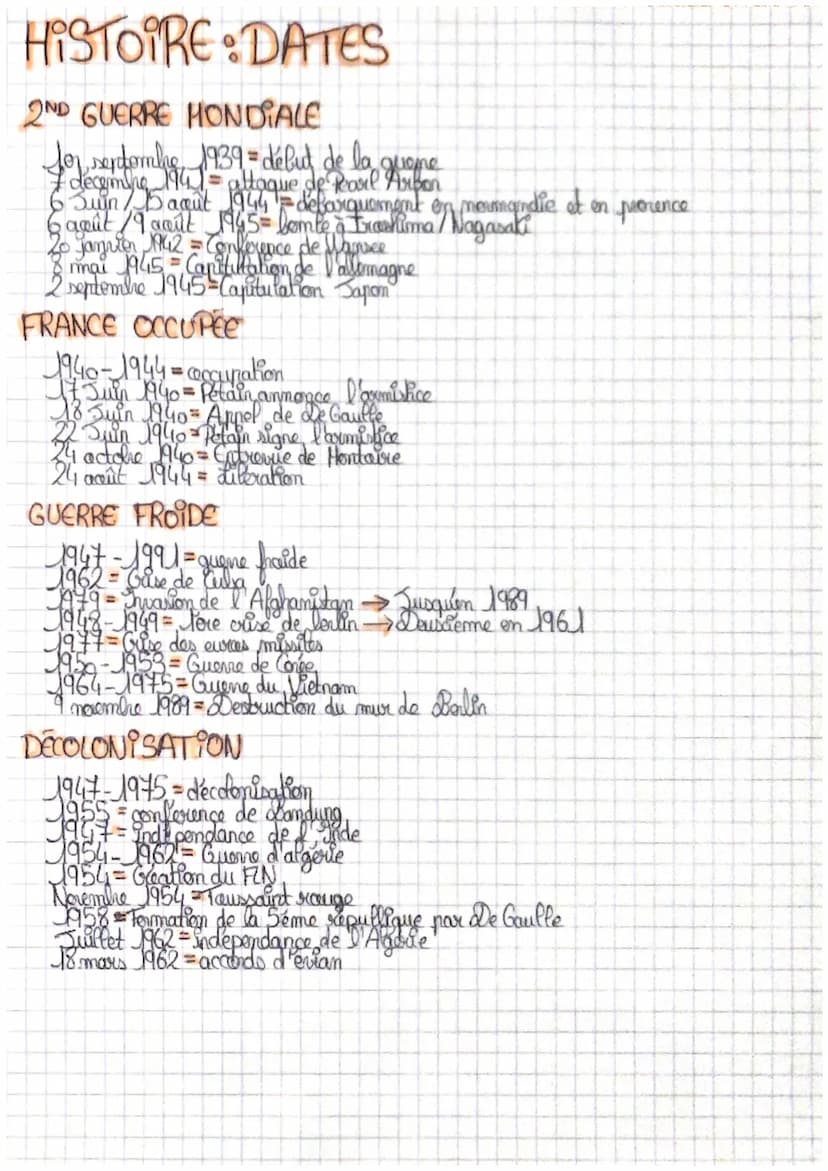 HISTOIRE : DATES
2ND GUERRE MONDIALE
1er septembre 1939 = début de la guerre
7 décembre 1941 = attaque de Pearl Arbor
6 Juin / 15 août 1944 = débarquement en normandie et en provence
6 août / 9 août 1945 = bombe à Iroshima / Nagasaki
20 janvier 1942 = Conférence de Wansee
8 mai 1945 = Capitulation de l'allemagne
2 septembre 1945 = Capitulation Japon
FRANCE OCCUPÉE
1940-1944 = occupation
17 Juin 1940 = Pétain annonce l'armistice
18 Juin 1940 = Appel de De Gaulle
22 Juin 1940 = Pétain signe l'armistice
24 octobre 1940 = Entrevue de Montoire
24 août 1944 = Libération
GUERRE FROIDE
1947 - 1991 = guerre froide
1962 = Crise de Cuba
1979 = Invasion de l'Afghanistan → Jusqu'en 1989
1948-1949 = 1ère crise de berlin → Deuxième en 1961
1977 = Crise des euros missiles
1950-1953 = Guerre de Corée
1964-1975 = Guerre du Vietnam
9 novembre 1989 = Destruction du mur de Berlin
DÉCOLONISATION
1947-1975 = décolonisation
1955 = conférence de Bandung
1947 = indépendance de l'Inde
1954-1962 = Guerre d'algérie
1954 = Création du FLN
Novembre 1954 = Toussaint rouge
1958 = Formation de la 5ème république par De Gaulle
Juillet 1962 = indépendance de l'Algérie
18 mars 1962 = accords d'évian